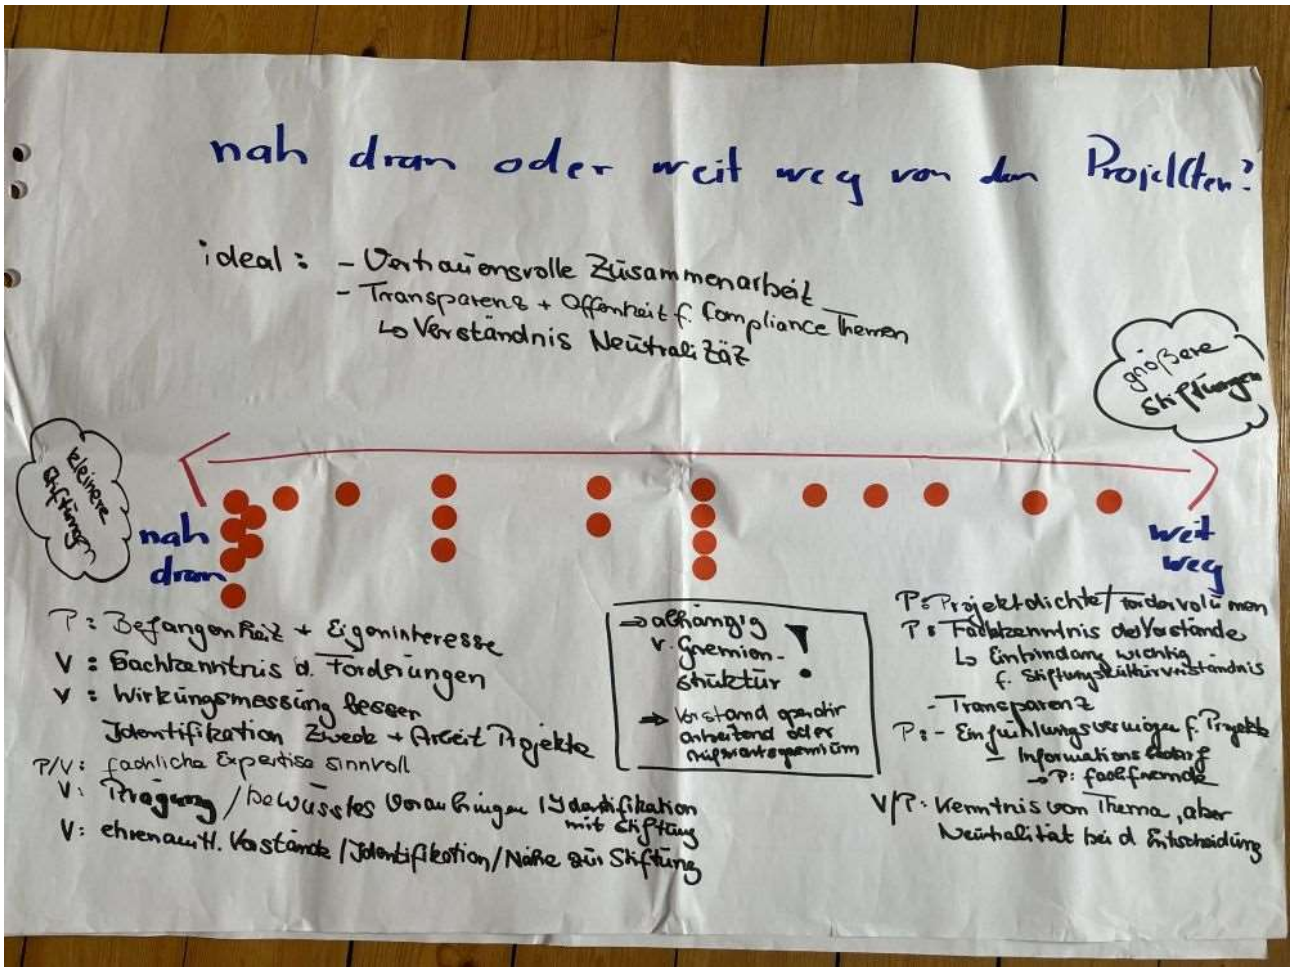 nah dran oder weit weg von den Projekten?
ideal: - Vertrauensvolle Zusammenarbeit
- Transparenz + Offenheit f. Compliance Themen
↳ Verständnis Neutralizäz
größere
Stiftungen
kleinere
Stiftungen
nah
dran
weit
weg
P: Befangenheit + Eigeninteresse
V: Sachkenntnis d. Förderungen
V: Wirkungsmessung besser
Identifikation Zweck + Arbeit Projekte
P/V: fachliche Expertise sinnvoll
V: Prägung / bewusstes Voranbringen / Identifikation
mit Stiftung
V: ehrenamtl. Vorstände / Identifikation / Nähe zur Stiftung
→ abhängig
v. Gremien-
struktur
!
→ Vorstand operativ
arbeitend oder
P: Projektdichte / Fördervolumen
P: Fachkenntnis der Vorstände
↳ Einbindung wichtig
f. Stiftungskulturverständnis
- Transparenz
P: - Einfühlungsvermögen f. Projekte
- Informationsbedarf
→ P: fachfremde
V/P: Kenntnis vom Thema, aber
Neutralität bei d. Entscheidung